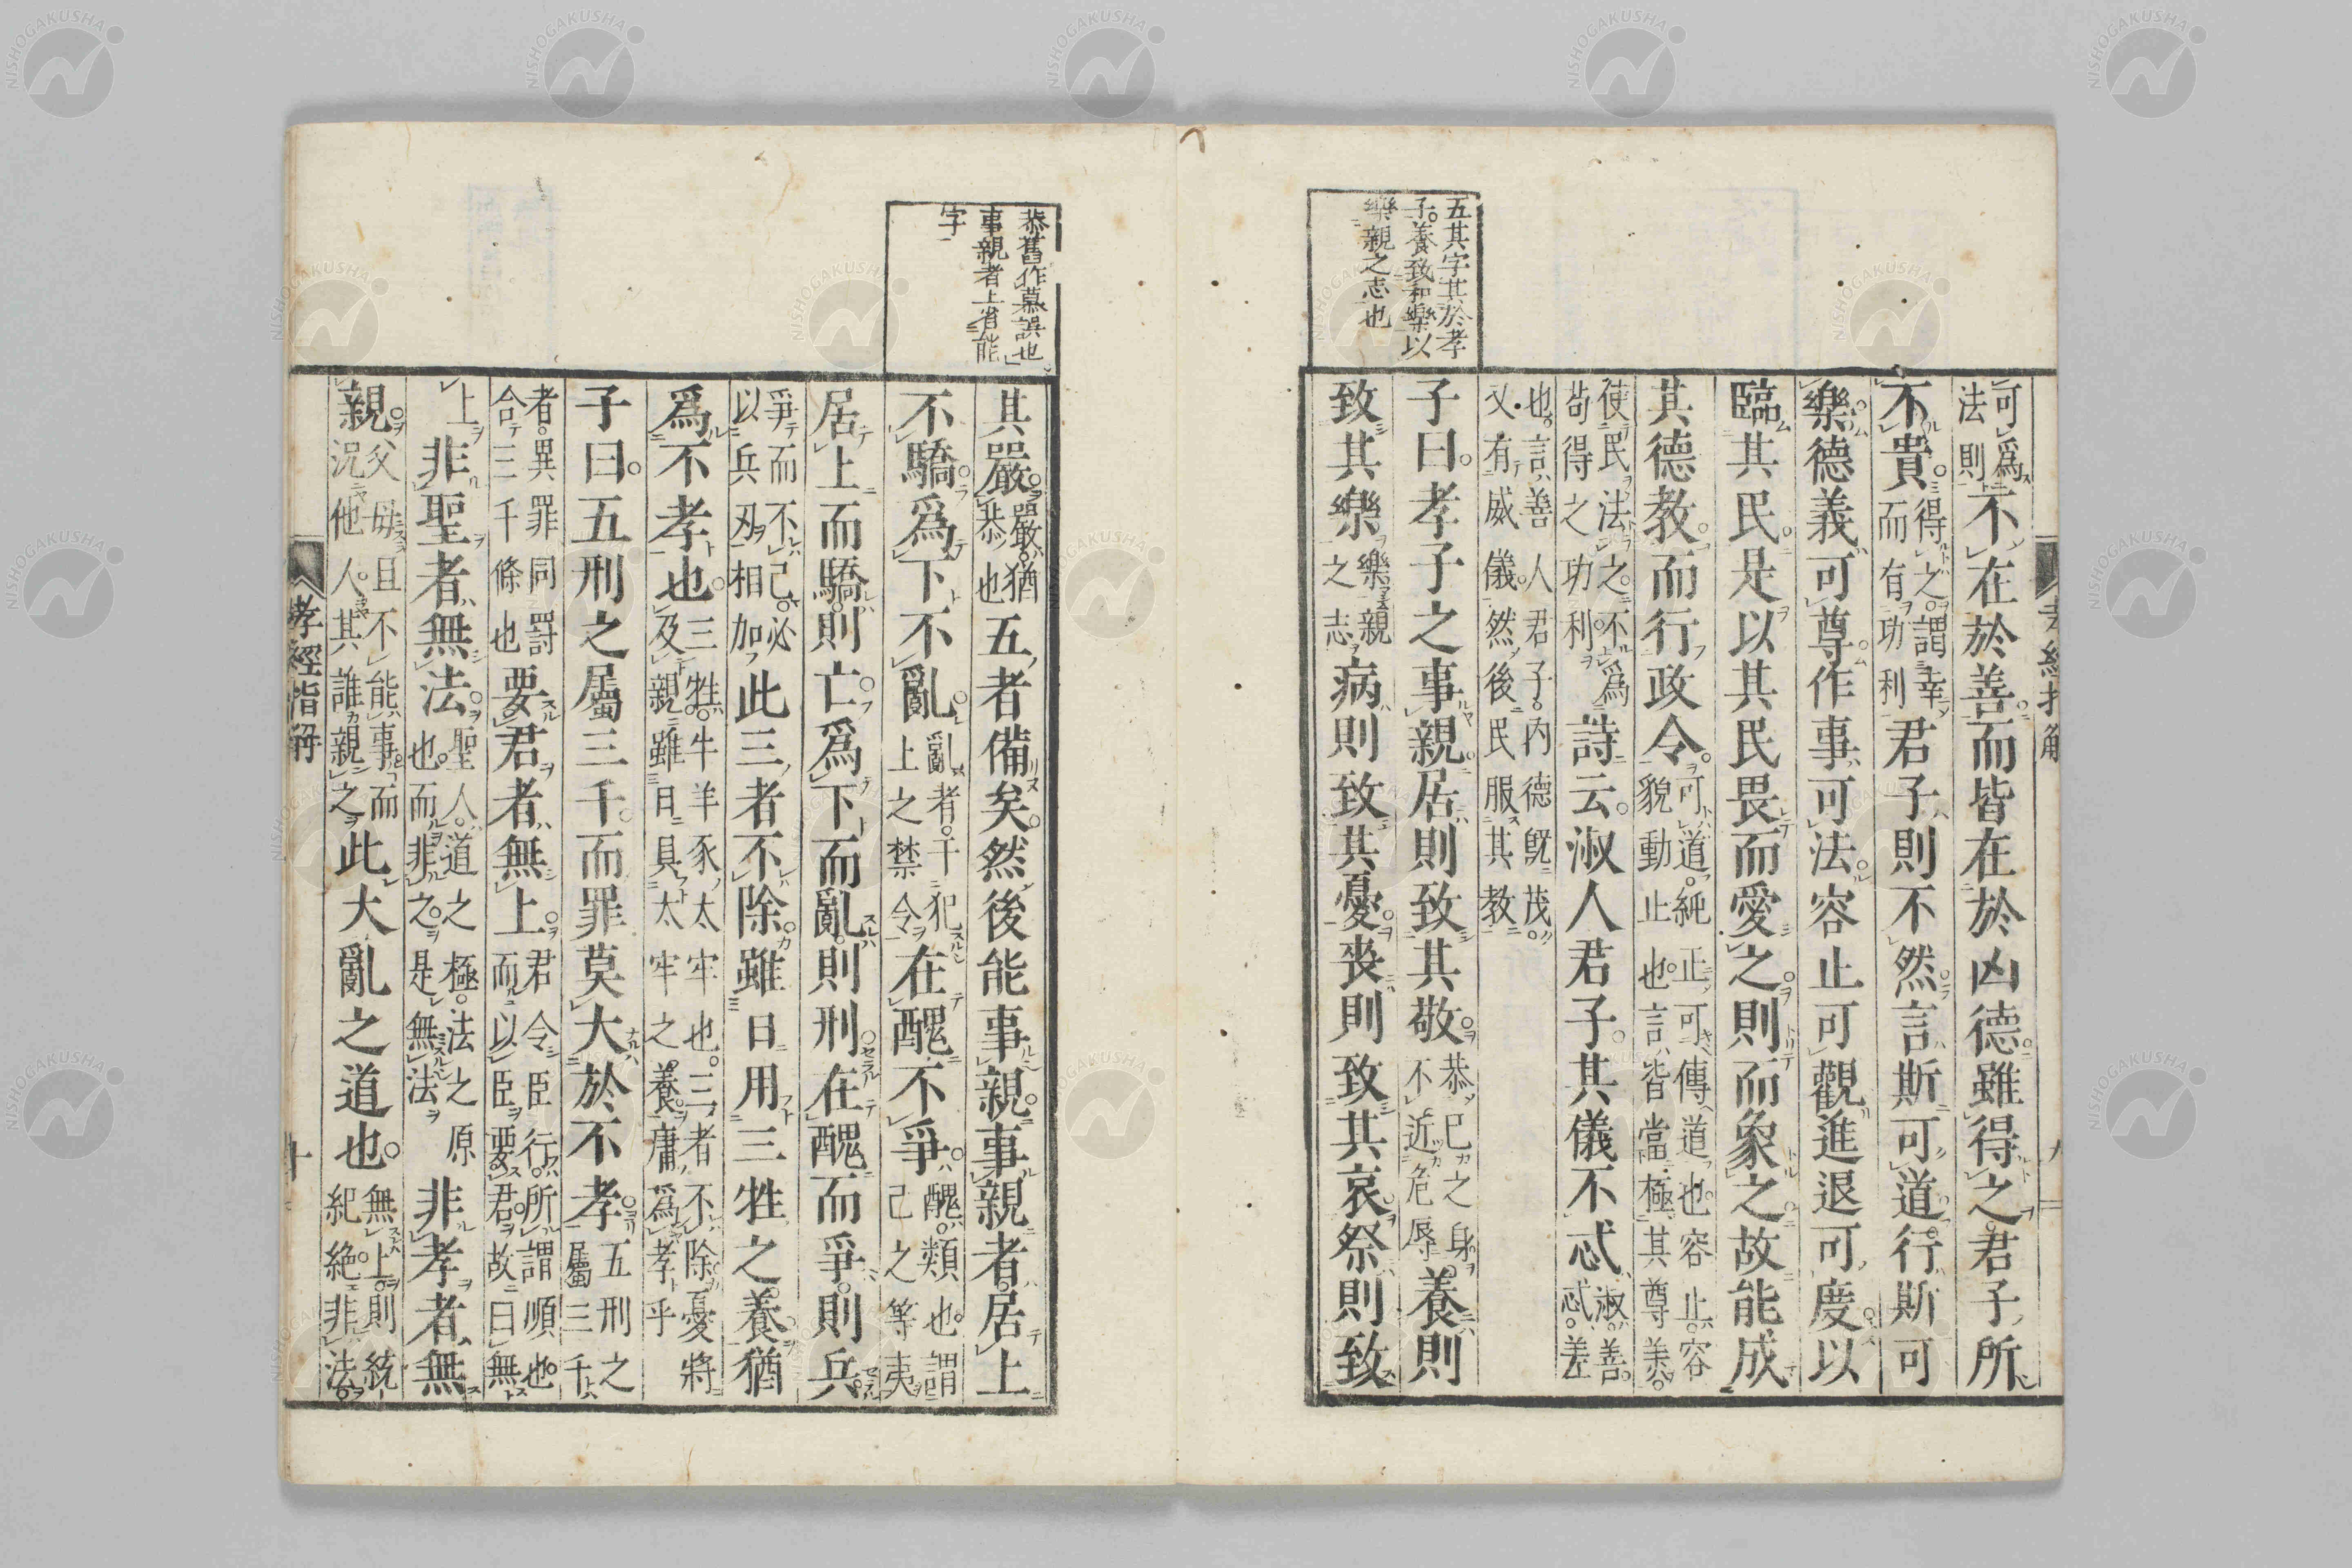 孝經指解
九
可爲法則不在於善而皆在於凶德雖得之君子所
不貴得之謂幸而有功利君子則不然言斯可道行斯可
樂德義可尊作事可法容止可觀進退可度以
臨其民是以其民畏而愛之則而象之故能成
其德教而行政令可道純正可傳道也容止容貌動止也言皆當極其尊美
使民法之不爲苟得之功利詩云淑人君子其儀不忒淑善忒差
也言善人君子内德既茂又有威儀然後民服其教
子曰孝子之事親居則致其敬恭己之身不近危辱養則
致其樂樂親之志病則致其憂喪則致其哀祭則致
五其字其於孝
子養致和樂以
樂親之志也
恭舊作慕誤也
事親者上省能
字
其嚴嚴猶恭也五者備矣然後能事親事親者居上
不驕爲下不亂亂者干犯上之禁令在醜不爭醜類也謂己之等夷
居上而驕則亡爲下而亂則刑在醜而爭則兵
爭而不己必以兵刃相加此三者不除雖日用三牲之養猶
爲不孝也三牲牛羊豕太牢也三者不除憂將及親雖日具太牢之養庸爲孝乎
子曰五刑之屬三千而罪莫大於不孝五刑之屬三千
者異罪同罰合三千條也要君者無上君令臣行所謂順也而以臣要君故曰無
上非聖者無法聖人道之極法之原也而非之是無法非孝者無
親父母且不能事而況他人其誰親之此大亂之道也無上則統紀絶非法
孝經指解
十
NISHOGAKUSHA